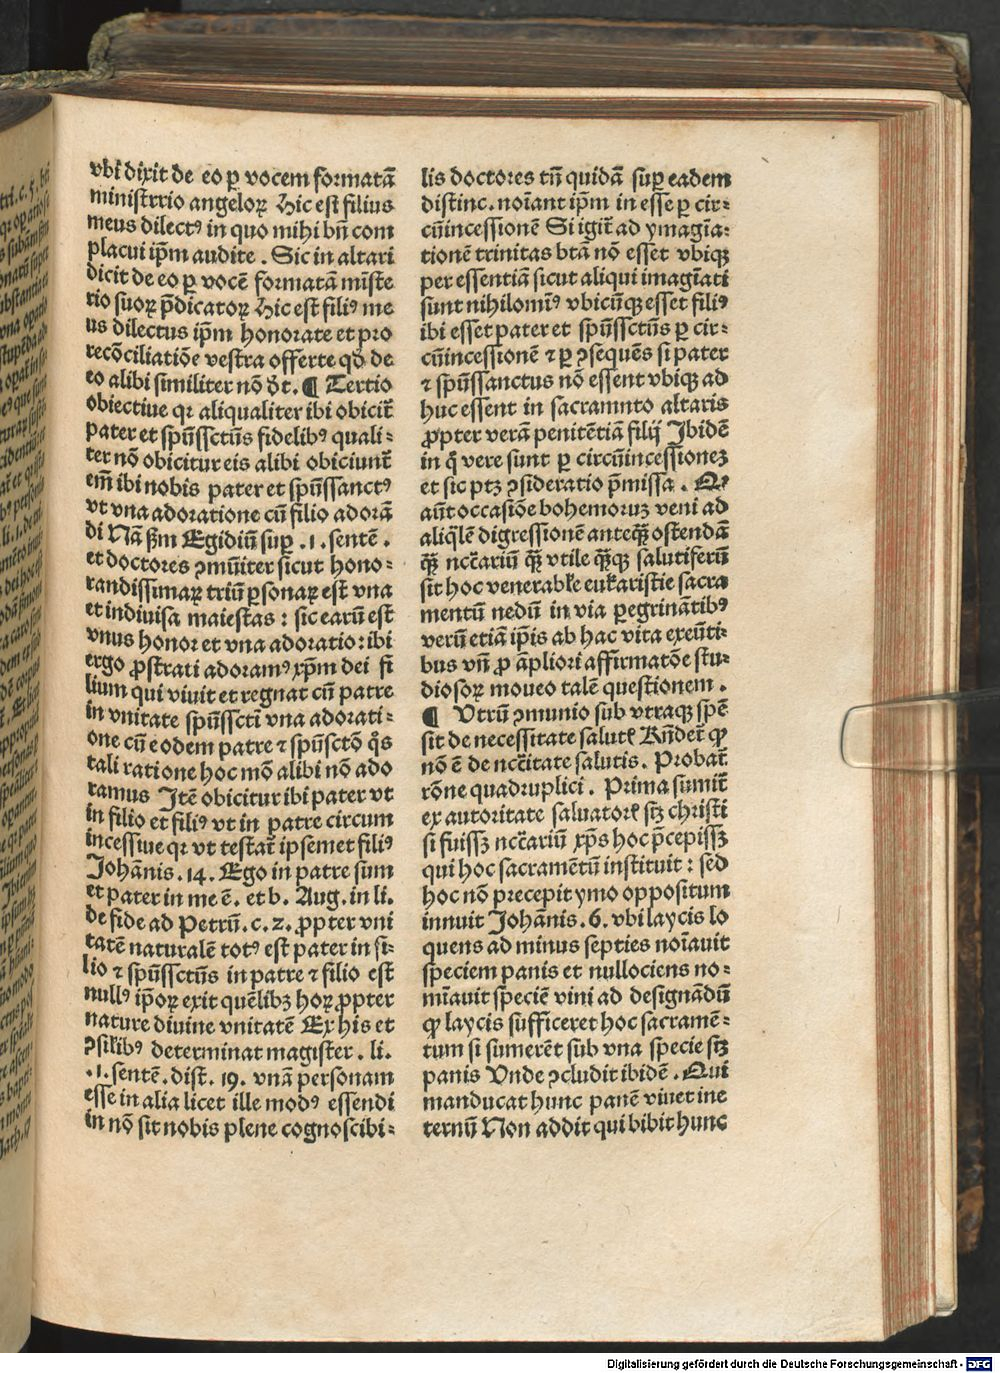 vbi dixit de eo ꝑ vocem formatā
ministrrio angeloꝝ Hic est filius
meus dilectꝰ in quo mihi bn̄ com
placui ip̄m audite . Sic in altari
dicit de eo ꝑ vocē formatā mīste
rio suoꝝ p̄dicatoꝝ Hic est filiꝰ me
us dilectus ip̄m honorate et pro
recōciliatiōe vestra offerte qd̓ de
eo alibi similiter nō d̓r. ¶ Tertio
obiectiue qꝛ aliqualiter ibi obicit̄
pater et spūssctūs fidelibꝰ quali⸗
ter nō obicitur eis alibi obiciunt̄
em̄ ibi nobis pater et spūssanctꝰ
vt vna adoratione cū filio adorā
di Nā ẜm Egidiū suꝑ .1. sentē .
et doctores ꝯmūiter sicut hono⸗
randissimaꝝ triū ꝑsonaꝝ est vna
et indiuisa maiestas : sic earū est
vnus honor et vna adoratio: ibi
ergo ꝓstrati adoramꝰ xp̄m dei fi
lium qui viuit et regnat cū patre
in vnitate spūssctī vna adorati⸗
one cū eodem patre ⁊ spūsctō q̄s
tali ratione hoc mō alibi nō ado
ramus Itē obicitur ibi pater vt
in filio et filiꝰ vt in patre circum
incessiue qꝛ vt testat̄ ipsemet filiꝰ
Johānis. 14. Ego in patre sum
et pater in me ē. et b. Aug. in li.
de fide ad Petrū. c. 2. ꝓpter vni
tatē naturalē totꝰ est pater in fi⸗
lio ⁊ spūssctūs in patre ⁊ filio est
nullꝰ ip̄oꝝ exit quēlibꝫ hoꝝ ꝓpter
nature diuine vnitatē Ex his et
ꝯsil̄ibꝰ determinat magister. li.
.1. sentē. dist. 19. vnā personam
esse in alia licet ille modꝰ essendi
in nō sit nobis plene cognoscibi⸗
lis doctores tn̄ quidā suꝑ eadem
distinc. noīant ip̄m in esse ꝑ cir⸗
cūincessionē Si igit̄ ad ymagīa⸗
tionē trinitas btā nō esset vbiqꝫ
per essentiā sicut aliqui imagīati
sunt nihilomīꝰ vbicūqꝫ esset filiꝰ
ibi esset pater et spūssctūs ꝑ cir⸗
cūincessionē ⁊ ꝑ ꝯsequēs si pater
⁊ spūssanctus nō essent vbiqꝫ ad
huc essent in sacramnto altaris
ꝓpter verā penitētiā filij Ibidē
in q̄ vere sunt ꝑ circūincessionez
et sic ptꝫ ꝯsideratio p̄missa .
aūt occasiōe bohemoruꝫ veni ad
aliq̄lē digressionē anteqꝫ̄ ostendā
qꝫ̄ ncc̄ariū qꝫ̄ vtile qꝫ̄qꝫ salutiferū
sit hoc venerabłe eukaristie sacra
mentū nedū in via ꝑegrinātibꝰ
verū etiā ip̄is ab hac vita exeūti⸗
bus vn̄ ꝓ āpliori affirmatōe stu⸗
diosoꝝ moueo talē questionem .
¶ Vtrū ꝯmunio sub vtraqꝫ spē
sit de necessitate salutꝭ Rn̄det̄ ꝙ
nō ē de ncc̄itate salutis. Probat̄
rōne quadruplici . Prima sumit̄
ex autoritate saluatorꝭ sꝫ christi
si fuissꝫ ncc̄ariū xp̄s hoc p̄cepissꝫ
qui hoc sacramētū instituit : sed
hoc nō precepit ymo oppositum
innuit Johānis. 6. vbi laycis lo
quens ad minus septies noīauit
speciem panis et nullociens no⸗
mīauit speciē vini ad designādū
ꝙ laycis sufficeret hoc sacramē⸗
tum si sumerēt sub vna specie sꝫ
panis Vnde ꝯcludit ibidē . Qui
manducat hunc panē viuet ine
ternū Non addit qui bibit hunc
Digitalisierung gefördert durch die Deutsche Forschungsgemeinschaft - DFG